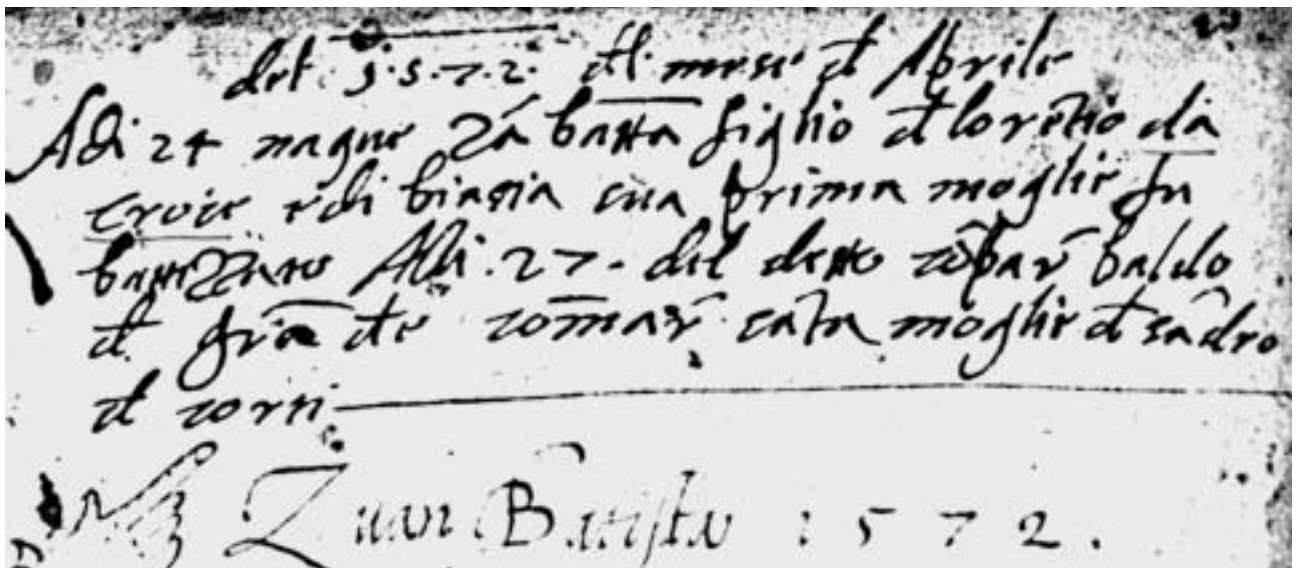 del 1.5.7.2. del mese de Aprile
Adi 24 naque Zã batta figlio de lorẽtio da
croce e di biasia sua prima moglie fu
battezzato Adi .27. del detto cõpar baldo
de comar cãta moglie de sãdro
de corti
Zuan Batista 1572.